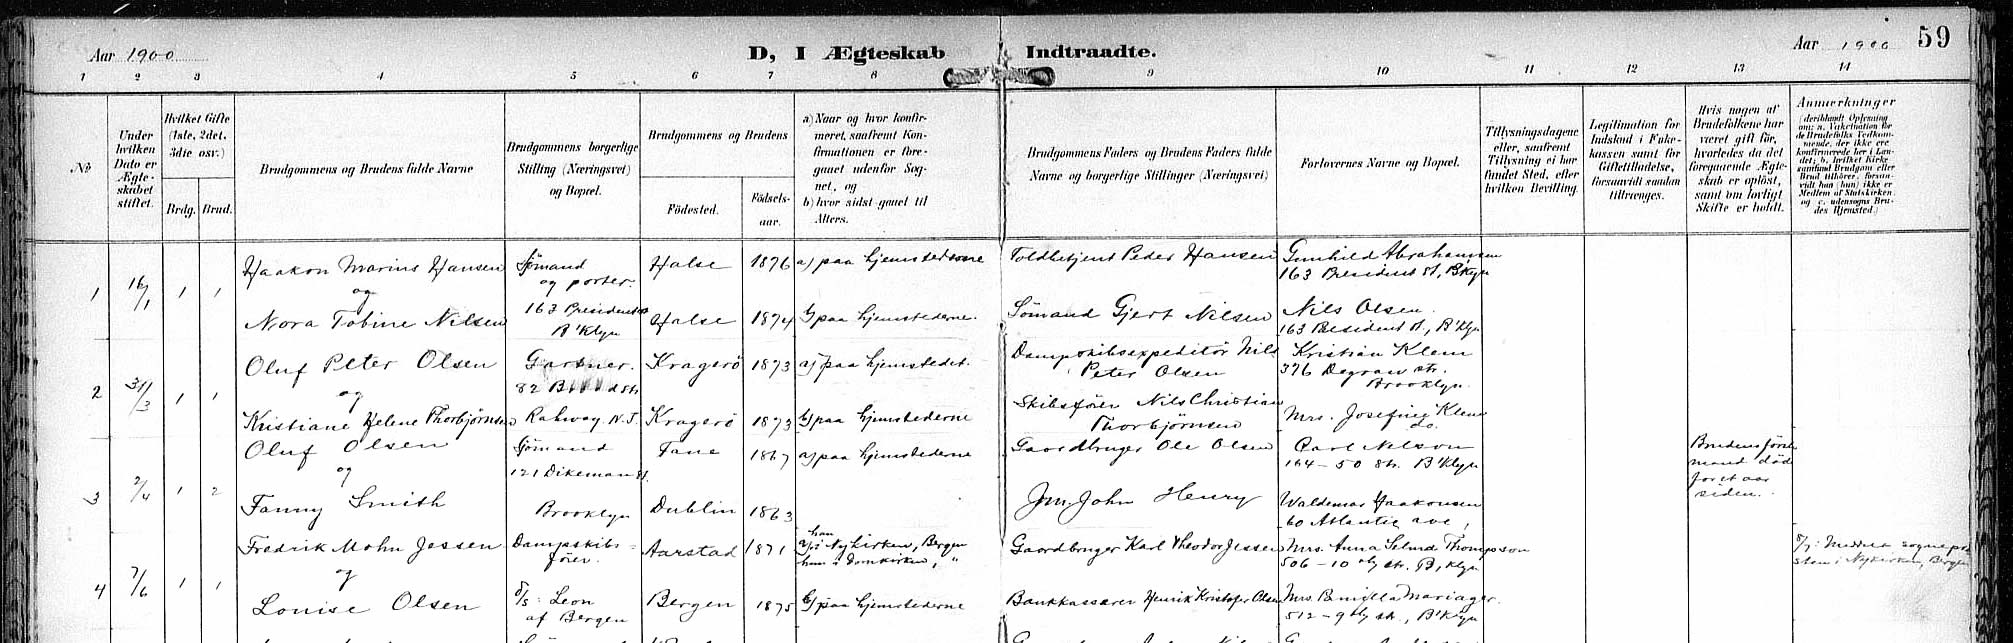 Aar 1900
D, I Ægteskab Indtraadte.
Aar 1900
59
1 2 3 4 5 6 7 8 9 10 11 12 13 14
No
Under
hvilken
Dato er
Ægte-
skabet
stiftet.
Hvilket Gifte
(1ste, 2det,
3die osv.)
Brdg. Brud.
Brudgommens og Brudens fulde Navne
Brudgommens borgerlige
Stilling (Næringsvei)
og Bopæl.
Brudgommens og Brudens
Fødested.
Fødsels-
aar.
a) Naar og hvor konfir-
meret, saafremt Kon-
firmationen er fore-
gaaet udenfor Sog-
net, og
b) hvor sidst gaaet til
Alters.
Brudgommens Faders og Brudens Faders fulde
Navne og borgerlige Stillinger (Næringsvei)
Forlovernes Navne og Bopæl.
Tillysningsdagene
eller, saafremt
Tillysning ei har
fundet Sted, efter
hvilken Bevilling.
Legitimation for
Indskud i Enke-
kassen samt for
Giftetilladelse,
forsaavidt saadan
tiltrænges.
Hvis nogen af
Brudefolkene har
været gift før,
hvorledes da det
foregaaende Ægte-
skab er opløst,
samt om lovligt
Skifte er holdt.
Anmerkninger
(deriblandt Oplysning
om: a. Vakcination for
de Brudefolks Vedkom-
mende, der ikke ere
konfirmerede her i Lan-
det; b. hvilket Kirke-
samfund Brudgom eller
Brud tilhører, forsaa-
vidt han (hun) ikke er
Medlem af Statskirken,
og c. udensogns Bru-
des Hjemsted.)
1 16/1 1 1
Haakon Marius Hansen
og
Nora Tobine Nilsen
Sjømand
og porter.
163 President st
B'klyn
Halse 1876
Halse 1874
a) paa hjemstederne
b) paa hjemstederne.
Toldbetjent Peder Hansen
Sømand Gjert Nilsen
Gunhild Abrahamsen
163 President st, B'klyn
Nils Olsen.
163 President st, B'klyn
2 31/3 1 1
Oluf Peter Olsen
og
Kristiane Helene Thorbjørnsen
Gartner.
82 Broad str
Rahway N.J.
Kragerö 1873
Kragerö 1873
a) paa hjemstedet.
b) paa hjemstederne
Dampskibsexpeditör Nils
Peter Olsen
Skibsfører Nils Christian
Thorbjørnsen
Kristian Klem
376 Degraw str.
Brooklyn.
Mrs. Josefine Klem
do.
3 2/4 1 2
Oluf Olsen
og
Fanny Smith
Sjømand
121 Dikeman st.
Brooklyn
Fane 1867
Dublin 1863
a) paa hjemstederne
Gaardbruger Ole Olsen
John Henry
Carl Nelson
164 – 50 Str. B'klyn
Waldemar Haakonsen
60 Atlantic ave,
Brudens förste
mand död
for et aar
siden.
4 7/6 1 1
Fredrik Mohn Jessen
og
Louise Olsen
Dampskibs-
fører.
S/S: Leon
af Bergen
Aarstad 1871
Bergen 1875
han
a) i Nykirken, Bergen
hun i Domkirken, "
b) paa hjemstederne
Gaardbruger Karl Theodor Jessen
Bankkasserer Henrik Kristofer Olsen
Mrs. Anna Selma Thompson
506 – 10 str. B'klyn
Mrs. Mariager.
512 – 9 str, B'klyn
i Nykirken, Bergen